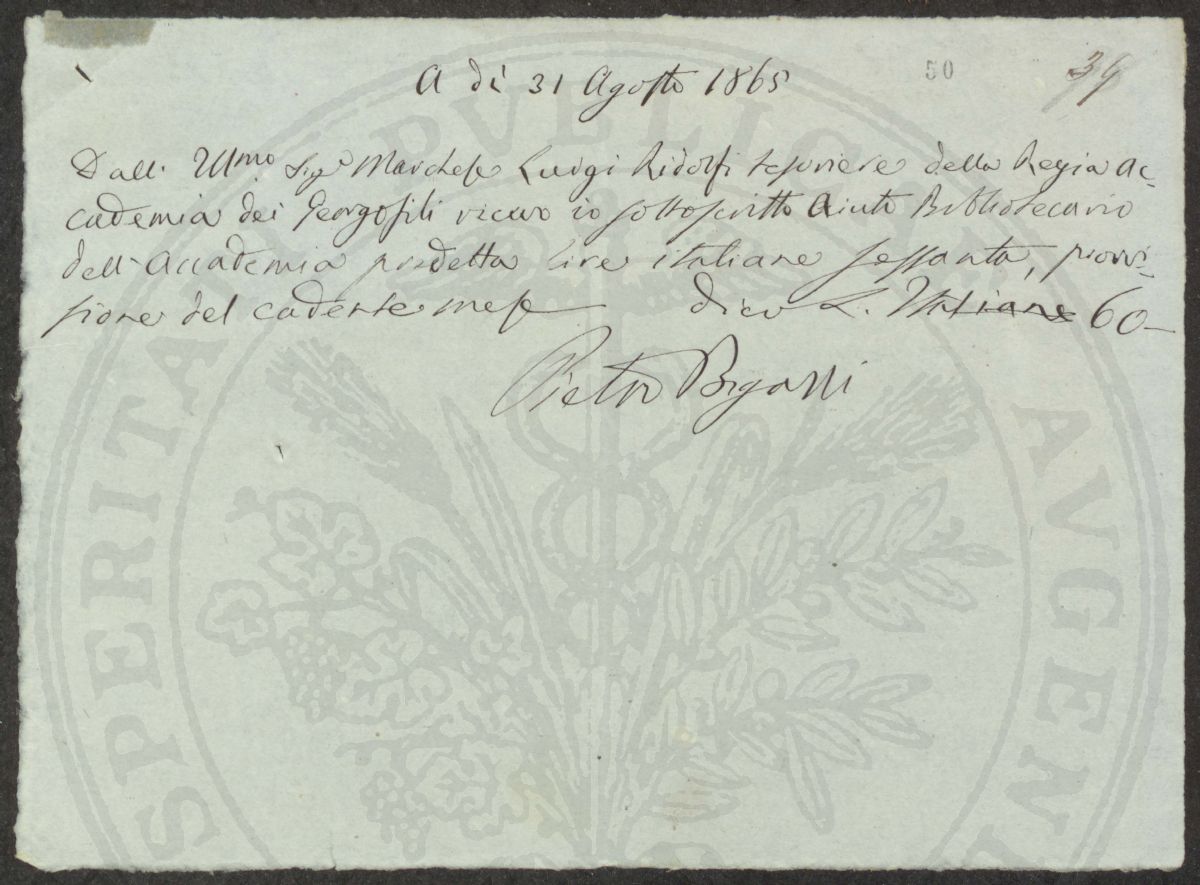 A dì 31 Agosto 1865
50
39
Dall' Ill.mo Sig.e Marchese Luigi Ridolfi tesoriere della Regia Ac-
cademia dei Georgofili ricevo io sottoscritto Aiuto Bibliotecario
dell' Accademia predetta Lire italiane sessanta, provvi-
sione del cadente mese dico L. Italiane 60-
Pietro Bigazzi
SPERITATI PVBLICAE AVGEN